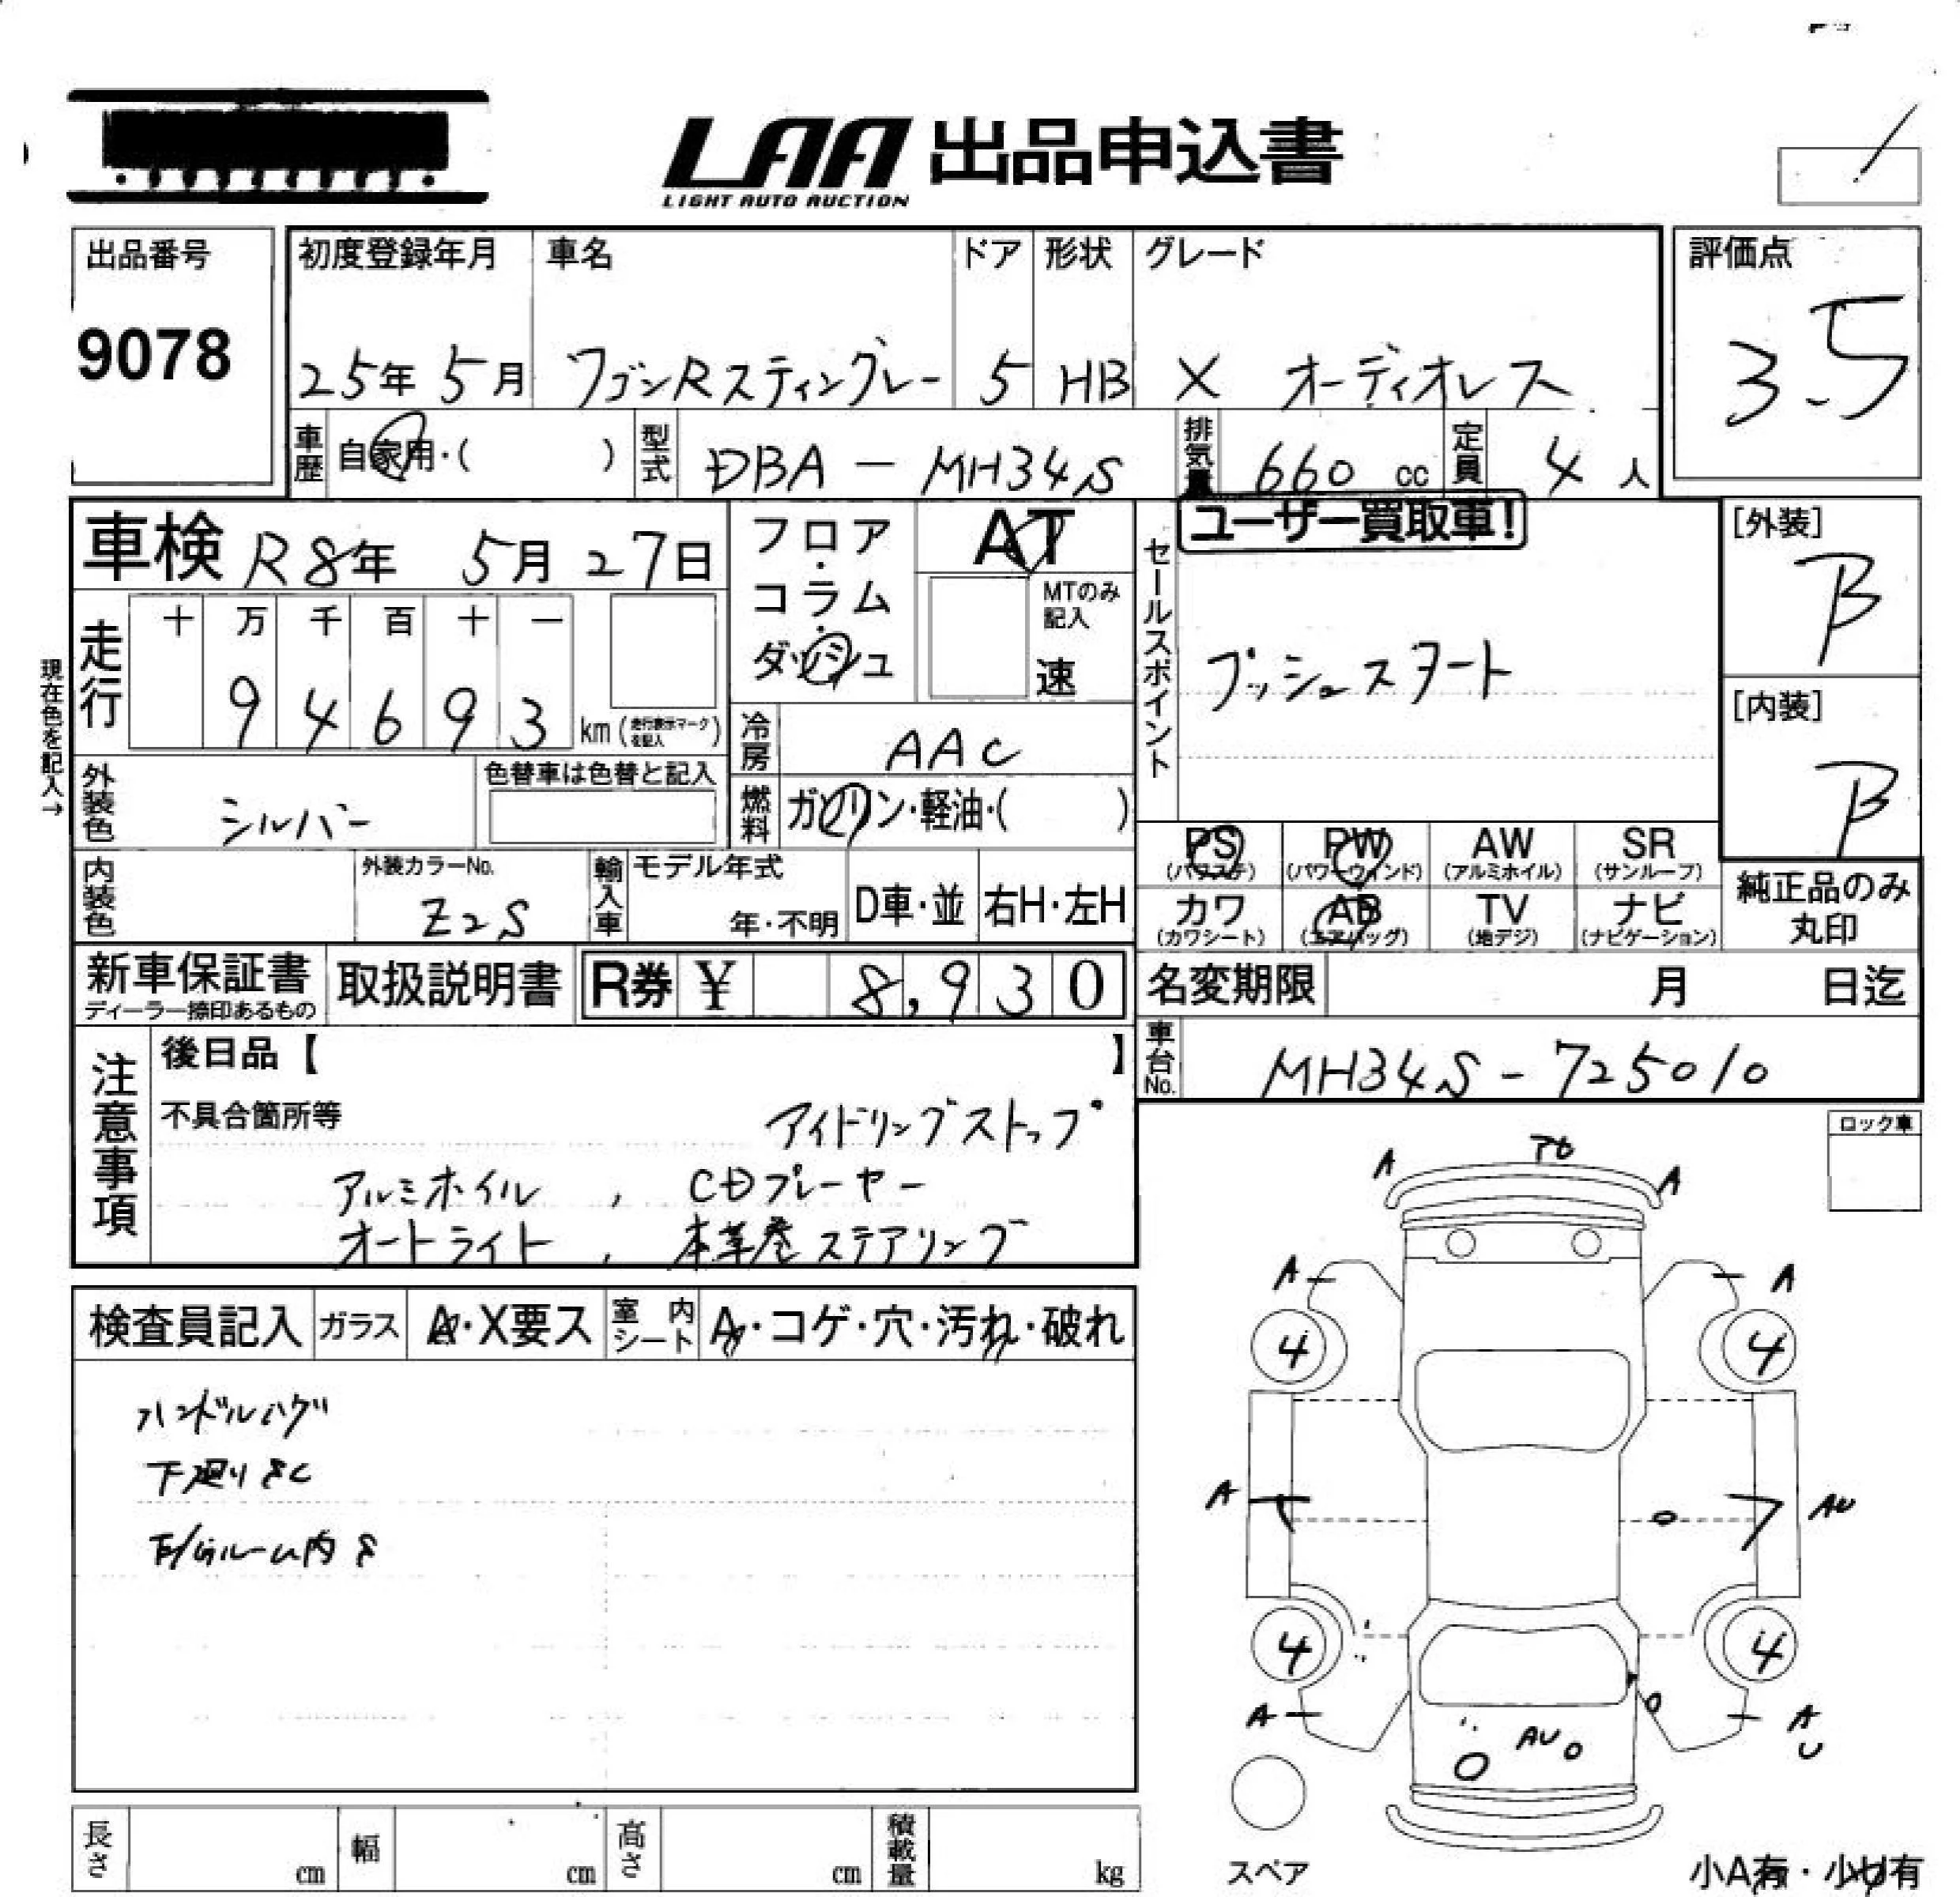 LAA 出品申込書
LIGHT AUTO AUCTION
出品番号
9078
初度登録年月 車名 ドア 形状 グレード
25年 5月 ワゴンRスティングレー 5 HB X オーディオレス
評価点
3.5
車歴 自家用・( ) 型式 DBA-MH34S 排気量 660 cc 定員 4 人
車検 R8年 5月 27日
フロア
コラム
ダッシュ
AT
MTのみ記入
速
セールスポイント
ユーザー買取車!
プッシュスタート
[外装]
B
[内装]
B
現在色を記入→
走行 十 万 千 百 十 一
9 4 6 9 3 km (走行表示マークを記入)
冷房 AAC
燃料 ガソリン・軽油・( )
外装色 シルバー 色替車は色替と記入
内装色 外装カラーNo. Z2S
輸入車 モデル年式 年・不明 D車・並 右H・左H
PS (パワステ) PW (パワーウィンド) AW (アルミホイル) SR (サンルーフ)
カワ (カワシート) AB (エアバッグ) TV (地デジ) ナビ (ナビゲーション)
純正品のみ丸印
新車保証書 ディーラー捺印あるもの 取扱説明書 R券 ¥ 8,930
名変期限 月 日迄
車台No. MH34S-725010
注意事項
後日品【 】
不具合箇所等 アイドリングストップ
アルミホイル , CDプレーヤー
オートライト , 本革巻ステアリング
検査員記入 ガラス A・X要ス 室内シート A・コゲ・穴・汚れ・破れ
ハンドルハゲ
下廻りサC
ロック車
A A
A A
4 4
A AU
4 4
A A U
AU
スペア
小A有・小U有
長さ cm 幅 cm 高さ cm 積載量 kg